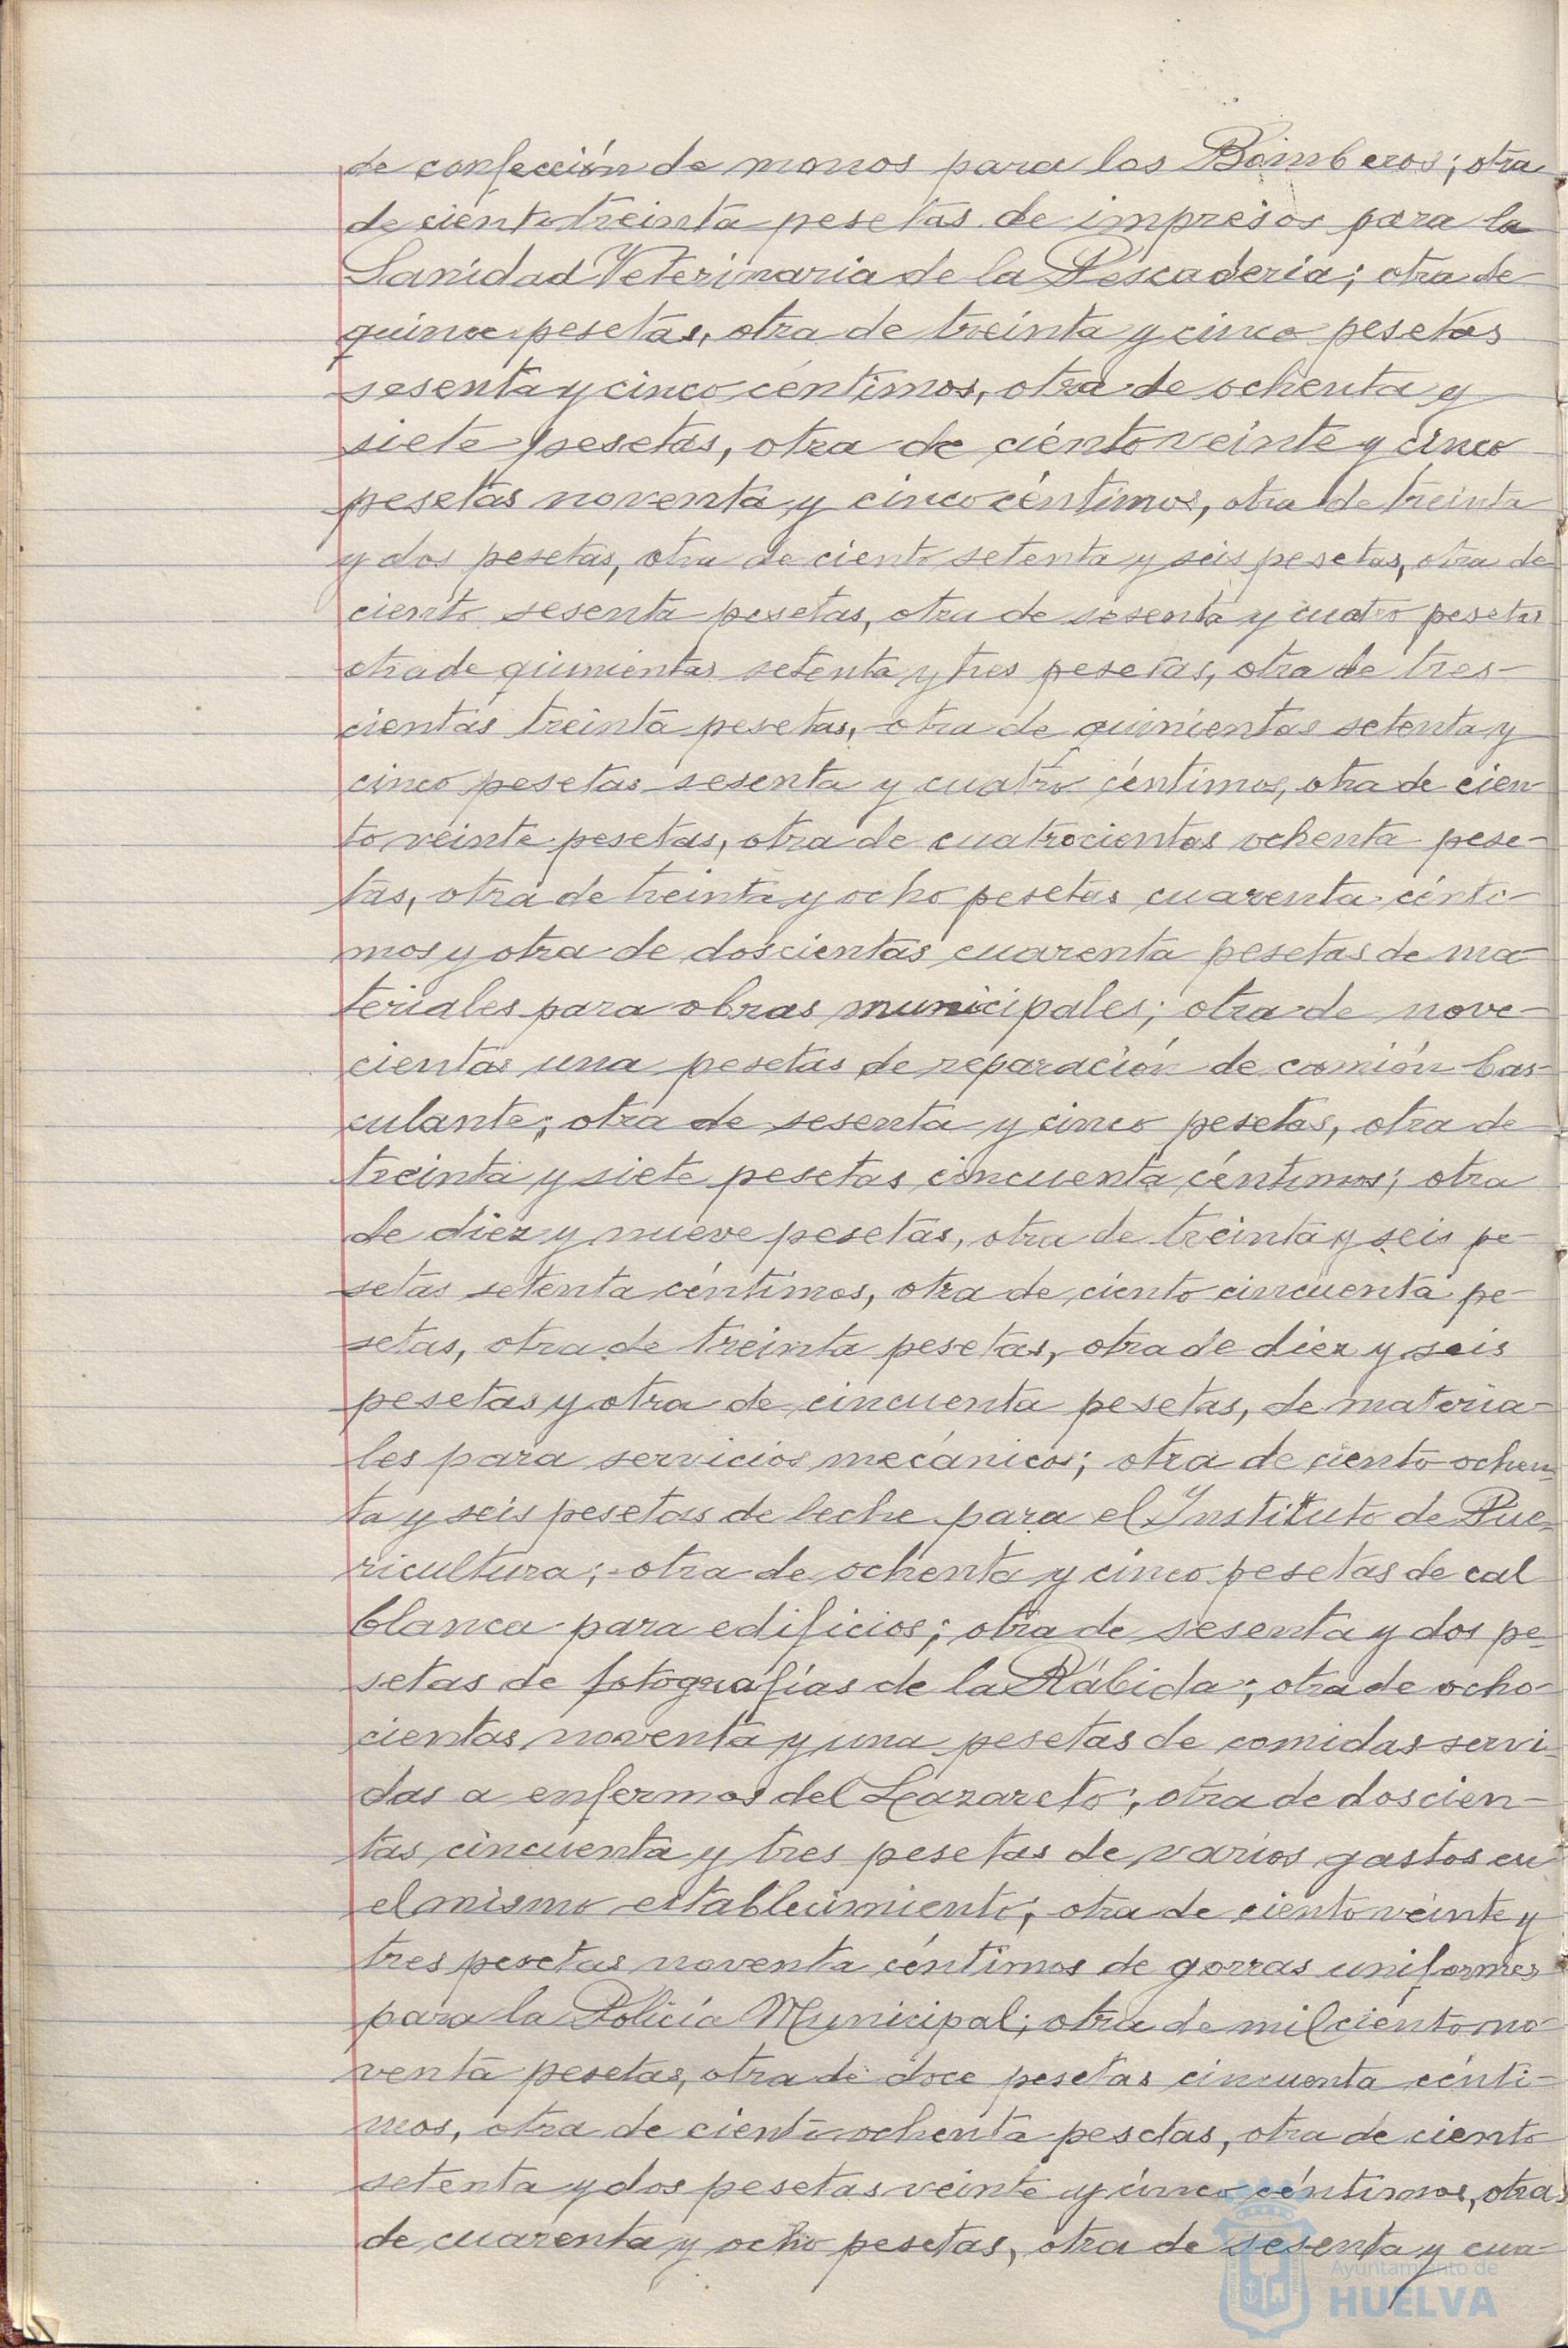 de confección de monos para los Bomberos; otra
de ciento treinta pesetas de impresos para la
Sanidad Veterinaria de la Pescadería; otra de
quince pesetas, otra de treinta y cinco pesetas
sesenta y cinco céntimos, otra de ochenta y
siete pesetas, otra de ciento veinte y cinco
pesetas noventa y cinco céntimos, otra de treinta
y dos pesetas, otra de ciento setenta y seis pesetas, otra de
ciento sesenta pesetas, otra de sesenta y cuatro pesetas
otra de quinientas setenta y tres pesetas, otra de tres-
cientas treinta pesetas, otra de quinientas setenta y
cinco pesetas sesenta y cuatro céntimos, otra de cien-
to veinte pesetas, otra de cuatrocientas ochenta pese-
tas, otra de treinta y ocho pesetas cuarenta cénti-
mos y otra de doscientas cuarenta pesetas de ma-
teriales para obras municipales; otra de nove-
cientas una pesetas de reparación de camión bas-
culante; otra de sesenta y cinco pesetas, otra de
treinta y siete pesetas cincuenta céntimos; otra
de diez y nueve pesetas, otra de treinta y seis pe-
setas setenta céntimos, otra de ciento cincuenta pe-
setas, otra de treinta pesetas, otra de diez y seis
pesetas y otra de cincuenta pesetas, de materia-
les para servicios mecánicos; otra de ciento ochen-
ta y seis pesetas de leche para el Instituto de Pue-
ricultura; otra de ochenta y cinco pesetas de cal
blanca para edificios; otra de sesenta y dos pe-
setas de fotografías de la Rábida; otra de ocho-
cientas noventa y una pesetas de comidas servi-
das a enfermos del Lazareto; otra de doscien-
tas cincuenta y tres pesetas de varios gastos en
el mismo establecimiento; otra de ciento veinte y
tres pesetas noventa céntimos de gorras uniformes
para la Policía Municipal; otra de mil ciento no-
venta pesetas, otra de doce pesetas cincuenta cénti-
mos, otra de ciento ochenta pesetas, otra de ciento
setenta y dos pesetas veinte y cinco céntimos, otra
de cuarenta y ocho pesetas, otra de sesenta y cua-
Ayuntamiento de
HUELVA